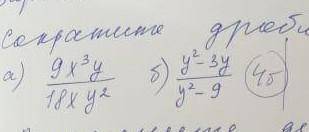 сократите дроби
а) 9x³y / 18xy² б) y²-3y / y²-9 4б